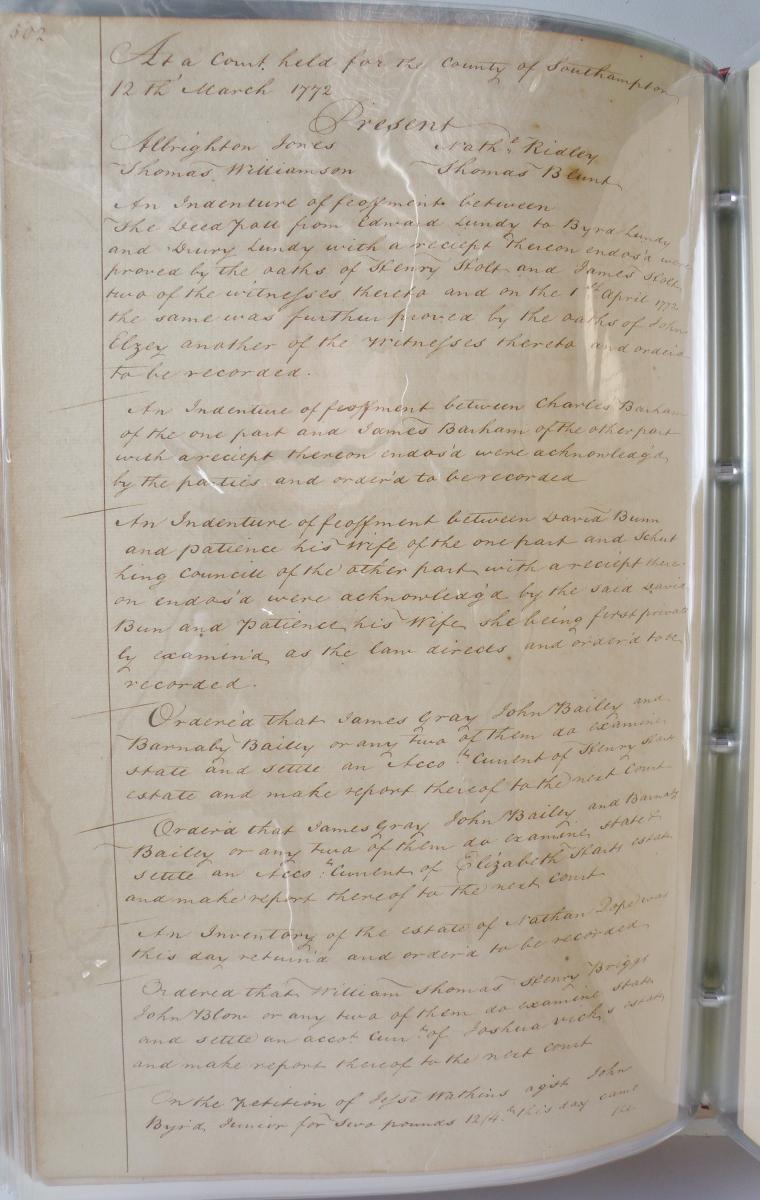 502
At a Court held for the County of Southampton
12th March 1772
Present
Albrighton Jones Nath.l Ridley
Thomas Williamson Thomas Blunt
An Indenture of feoffment between
The Deed Poll from Edward Lundy to Byrd Lundy
and Drury Lundy with a reciept thereon endos'd were
proved by the oaths of Henry Holt and James Holt
two of the witnesses thereto and on the 1st April 1772
the same was further proved by the oaths of John
Elzey another of the Witnesses thereto and order'd
to be recorded.
An Indenture of feoffment between Charles Barham
of the one part and James Barham of the other part
with a reciept thereon endos'd were acknowledg'd
by the parties and order'd to be recorded
An Indenture of feoffment between David Bunn
and Patience his Wife of the one part and Schut
hing Councill of the other part with a reciept there
on endos'd were acknowledg'd by the said David
Bun and Patience his Wife she being first private
ly examin'd as the law direcs and order'd to be
recorded.
Ordered that James Gray John Bailey and
Barnaby Bailey or any two of them do examine
state and settle an Acco.t Current of Henry
estate and make report thereof to the next Court
Order'd that James Gray John Bailey and Barnaby
Bailey or any two of them do examine state &
settle an Acco.t Current of Elizabeth estate
and make report thereof to the next court
An Inventory of the estate of Nathan Pope was
this day return'd and order'd to be recorded
Ordered that William Thomas Henry Briggs
John Blow or any two of them do examine state
and settle an acco.t Curr.t of Joshua Vick's estate
and make report thereof to the next court
On the Petition of Jesse Watkins agst John
Byrd Junior for two pounds 12/4 this day came
the